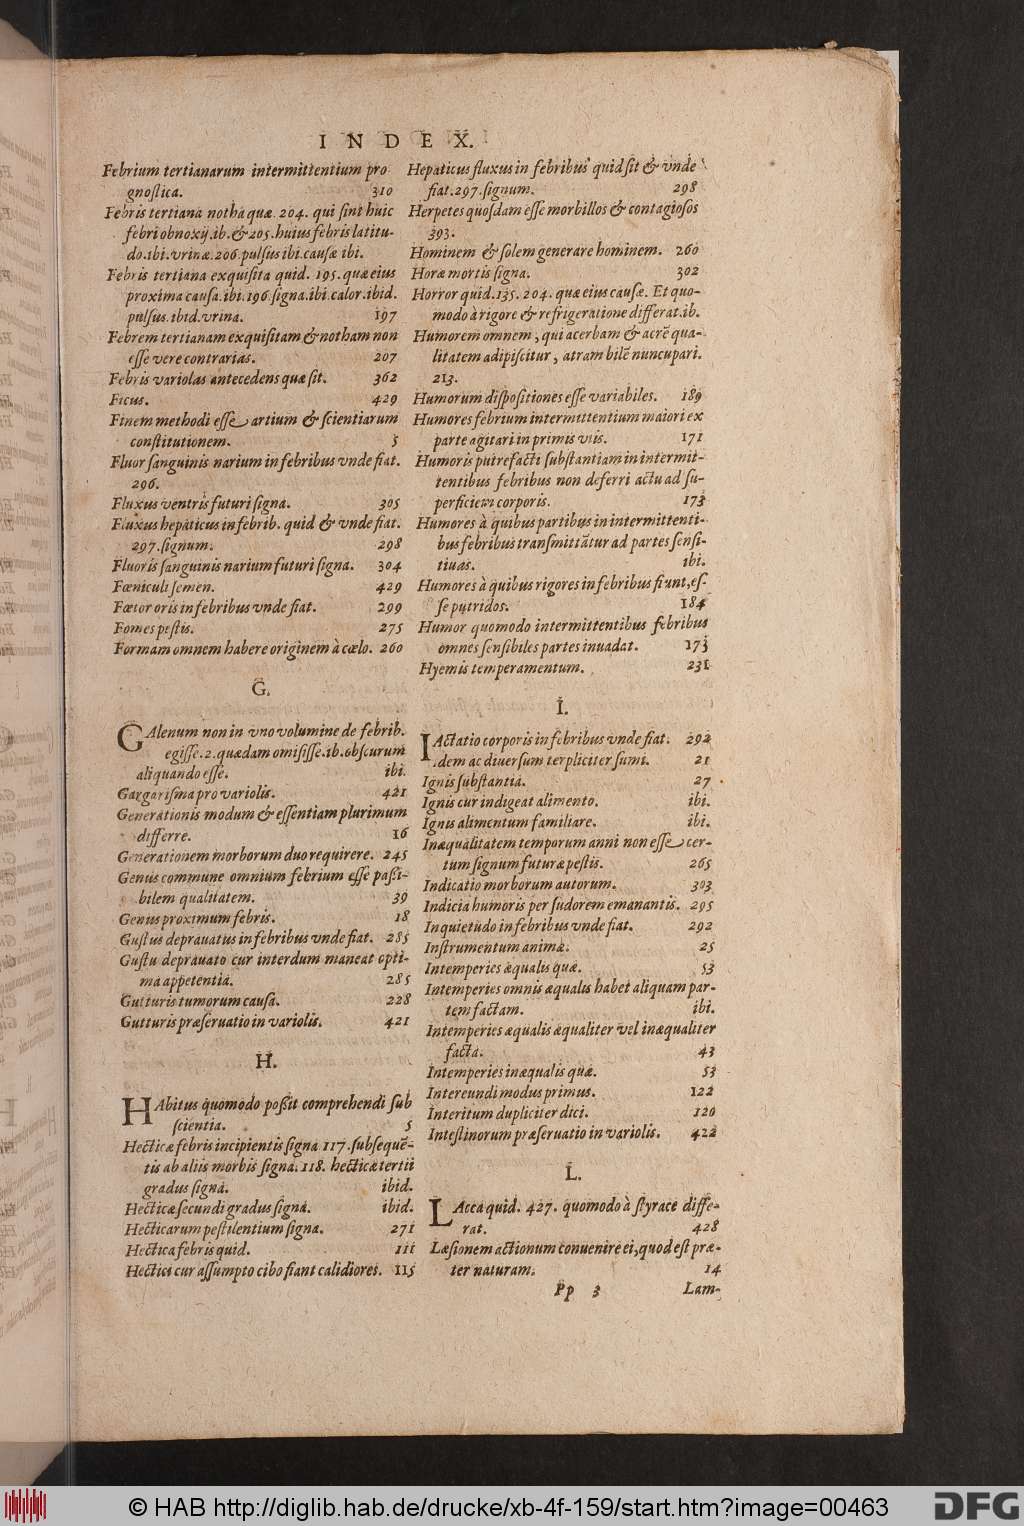 INDEX.
Febrium tertianarum intermittentium pro
gnoſtica. 310
Febris tertiana notha quæ 204. qui ſint huic
febri obnoxij.ib.&205.huius febris latitu-
do.ibi.vrinæ.206 pulſus ibi.cauſæ ibi.
Febris tertiana exquiſita quid. 195. quæ eius
proxima cauſa.ibi.196 ſigna.ibi.calor.ibid.
pulſus.ibid.vrina. 197
Febrem tertianam exquiſitam & notham non
eſſe vere contrarias. 207
Febris variolas antecedens quæ ſit. 362
Ficus. 429
Finem methodi eſſe artium & ſcientiarum
conſtitutionem. 5
Fluor ſanguinis narium in febribus vnde fiat.
296.
Fluxus ventris futuri ſigna. 305
Fluxus hepaticus in febrib. quid & vnde fiat.
297.ſignum. 298
Fluoris ſanguinis narium futuri ſigna. 304
Fœniculi ſemen. 429
Fœtor oris in febribus vnde fiat. 299
Fomes peſtis. 275
Formam omnem habere originem à cœlo. 260
G.
GAlenum non in vno volumine de febrib.
egiſſe.2.quædam omiſiſſe.ib.obſcurum
aliquando eſſe. ibi.
Gargariſma pro variolis. 421
Generationis modum & eſſentiam plurimum
differre. 16
Generationem morborum duo requirere. 245
Genus commune omnium febrium eſſe paßi-
bilem qualitatem. 39
Genus proximum febris. 18
Guſtus deprauatus in febribus vnde fiat. 285
Guſtu deprauato cur interdum maneat opti-
ma appetentia. 285
Gutturis tumorum cauſa. 228
Gutturis præſeruatio in variolis. 421
H.
HAbitus quomodo poßit comprehendi ſub
ſcientia. 5
Hecticæ febris incipientis ſigna 117.ſubſequē-
tis ab aliis morbis ſigna. 118. hecticæ tertii
gradus ſigna. ibid.
Hecticæ ſecundi gradus ſigna. ibid.
Hecticarum peſtilentium ſigna. 271
Hectica febris quid. 111
Hectici cur aſſumpto cibo fiant calidiores. 115
Hepaticus fluxus in febribus quid ſit & vnde
fiat.297.ſignum. 298
Herpetes quoſdam eſſe morbillos & contagioſos
393.
Hominem & ſolem generare hominem. 260
Horæ mortis ſigna. 302
Horror quid.135. 204. quæ eius cauſæ. Et quo-
modo à rigore & refrigeratione differat.ib.
Humorem omnem, qui acerbam & acrē qua-
litatem adipiſcitur, atram bilē nuncupari.
213.
Humorum diſpoſitiones eſſe variabiles. 189
Humores febrium intermittentium maiori ex
parte agitari in primis viis. 171
Humoris putrefacti ſubſtantiam in intermit-
tentibus febribus non deferri actu ad ſu-
perficiem corporis. 173
Humores à quibus partibus in intermittenti-
bus febribus tranſmittātur ad partes ſenſi-
tiuas. ibi.
Humores à quibus rigores in febribus fiunt,eſ-
ſe putridos. 184
Humor quomodo intermittentibus febribus
omnes ſenſibiles partes inuadat. 173
Hyemis temperamentum. 231
I.
IActatio corporis in febribus vnde fiat. 292
Idem ac diuerſum terpliciter ſumi. 21
Ignis ſubſtantia. 27
Ignis cur indigeat alimento. ibi.
Ignis alimentum familiare. ibi.
Inæqualitatem temporum anni non eſſe cer-
tum ſignum futuræ peſtis. 265
Indicatio morborum autorum. 303
Indicia humoris per ſudorem emanantis. 295
Inquietudo in febribus vnde fiat. 292
Inſtrumentum animæ. 25
Intemperies æqualis quæ. 53
Intemperies omnis æqualis habet aliquam par-
tem factam. ibi.
Intemperies æqualis æqualiter vel inæqualiter
facta. 43
Intemperies inæqualis quæ. 53
Intereundi modus primus. 122
Interitum dupliciter dici. 120
Inteſtinorum præſeruatio in variolis. 422
L.
LAcca quid. 427. quomodo à ſtyrace diffe-
rat. 428
Læſionem actionum conuenire ei,quod eſt præ-
ter naturam. 14
Pp 3 Lam-
© HAB http://diglib.hab.de/drucke/xb-4f-159/start.htm?image=00463
DFG